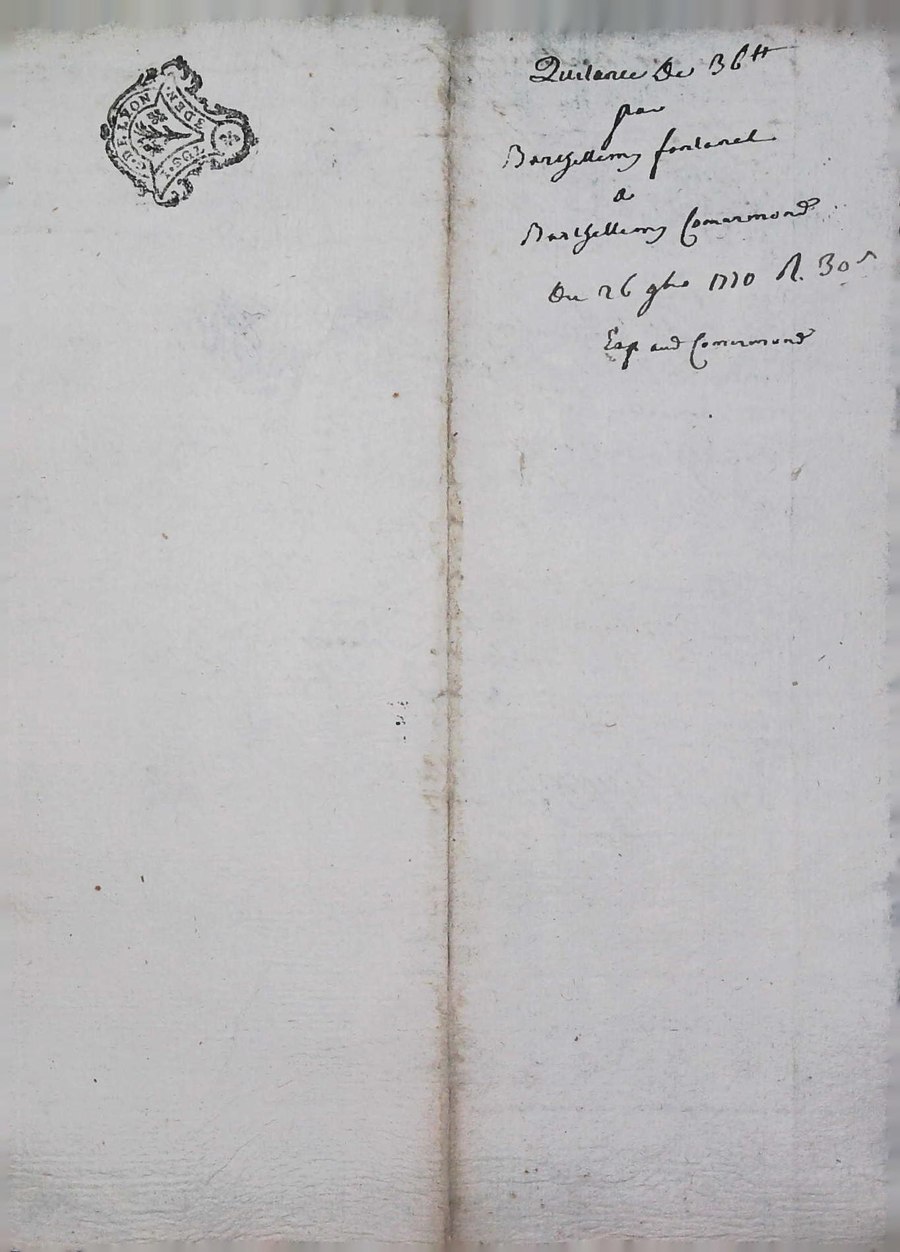 G. DE LYON
1. SOL
3 DEN.
Quitance De 36 ₶
par
Barthellemy fontanel
a
Barthellemy Comarmond
Du 26 9bre 1770 R. 30 s
Exp aud Comarmond